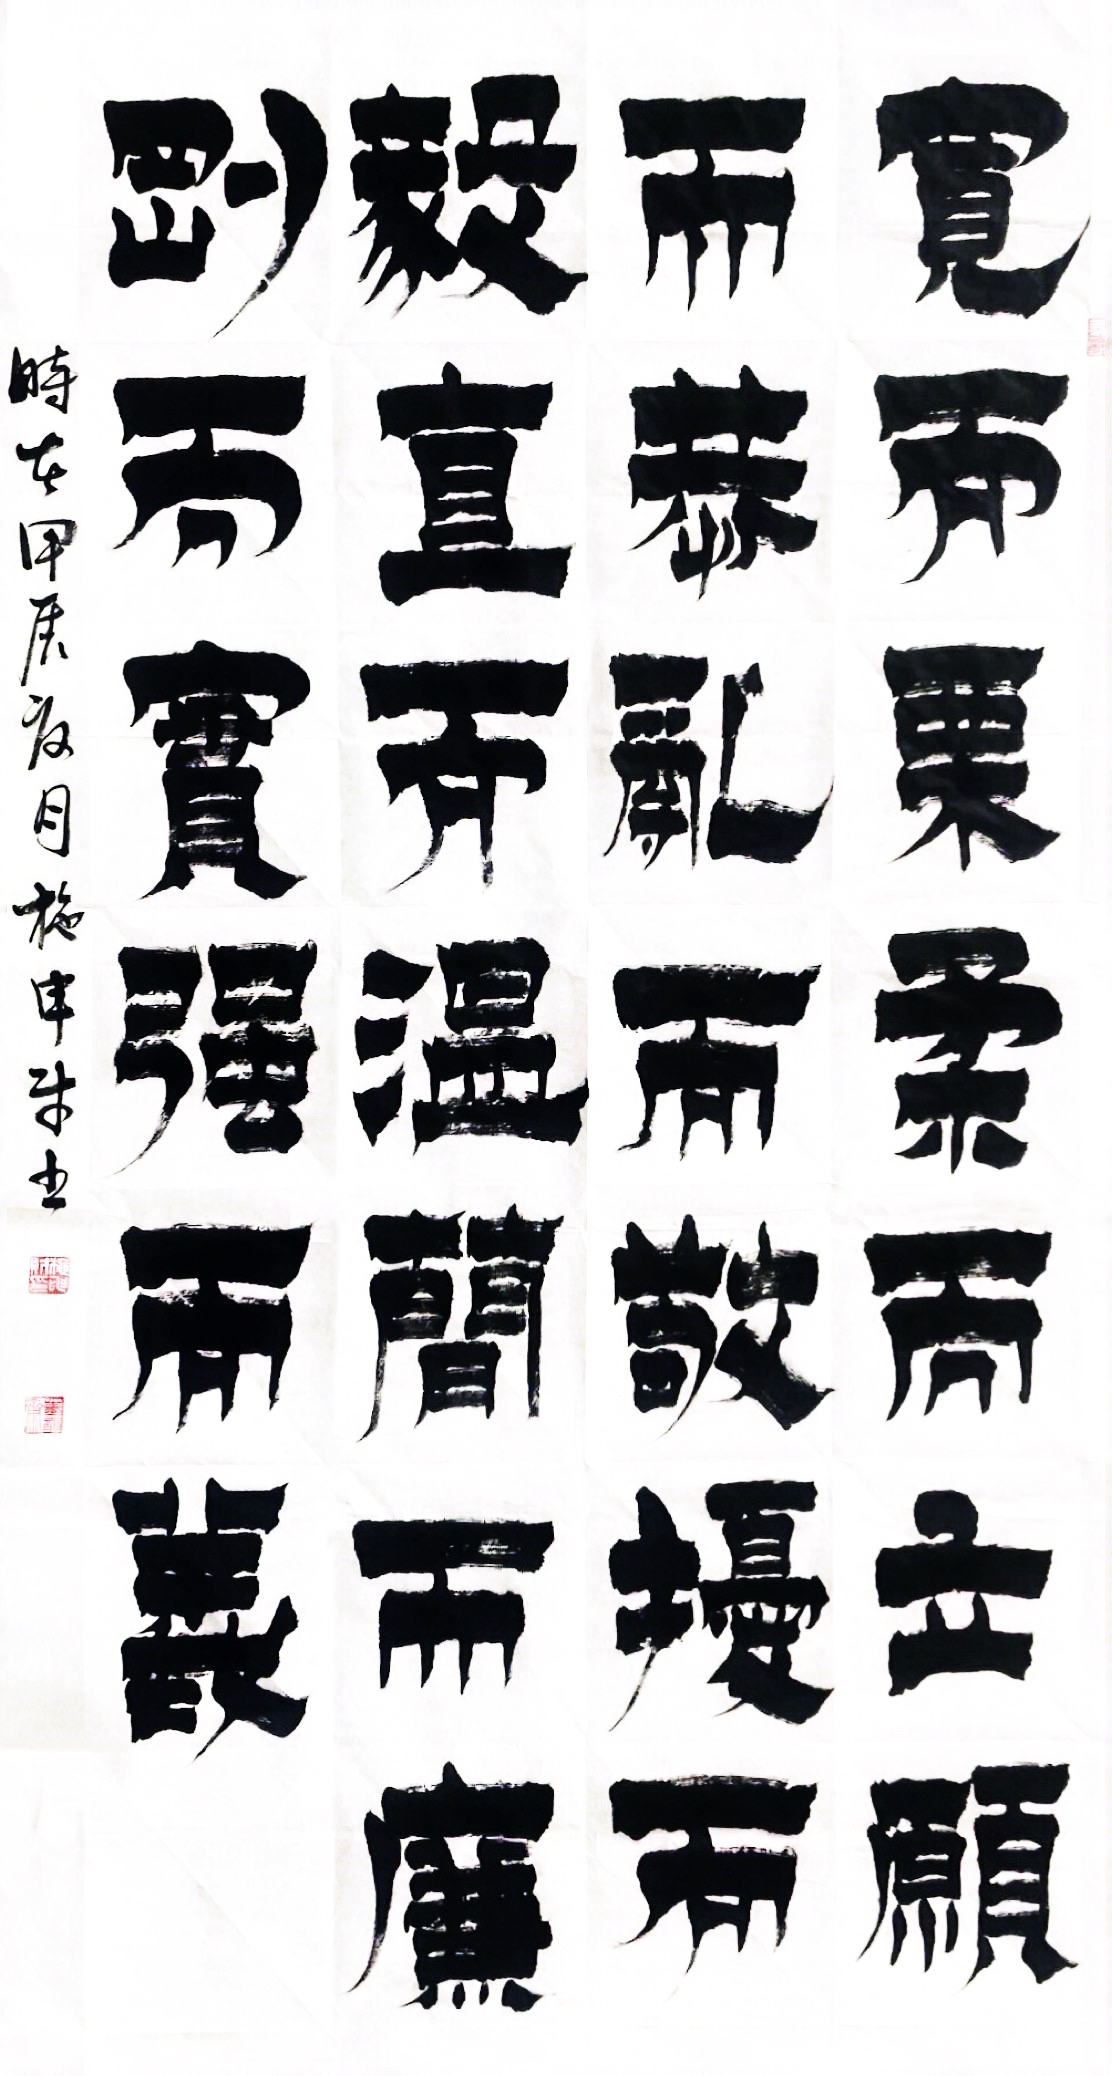 寬而栗柔而立願
而恭亂而敬擾而
毅直而溫簡而廉
剛而實强而義
時在甲辰夏月施申財书